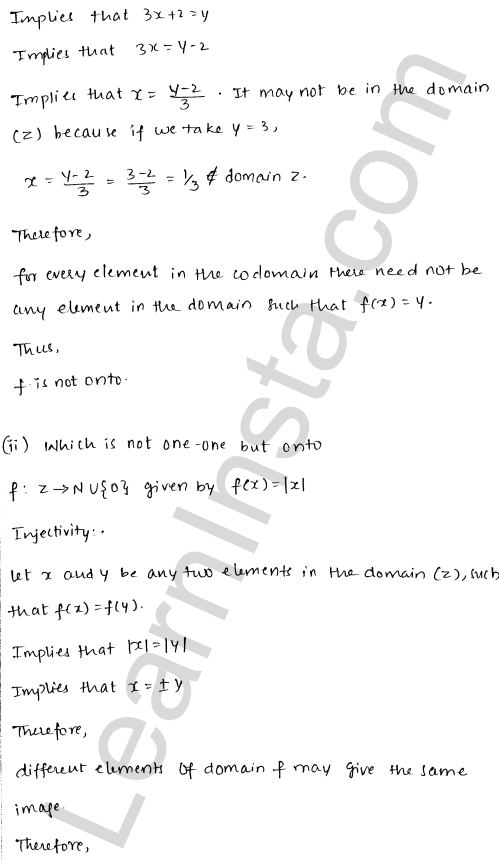 Implies that 3x+2=y
Implies that 3x=y-2
Implies that x = y-2/3 . It may not be in the domain
(z) because if we take y=3,
x = y-2/3 = 3-2/3 = 1/3 ∉ domain z.
Therefore,
for every element in the codomain there need not be
any element in the domain such that f(x)=y.
Thus,
f is not onto.
(ii) Which is not one-one but onto
f: z→N∪{0} given by f(x)=|x|
Injectivity:.
Let x and y be any two elements in the domain (z), such
that f(x)=f(y).
Implies that |x|=|y|
Implies that x=±y
Therefore,
different elements of domain f may give the same
image.
Therefore,
LearnInsta.com